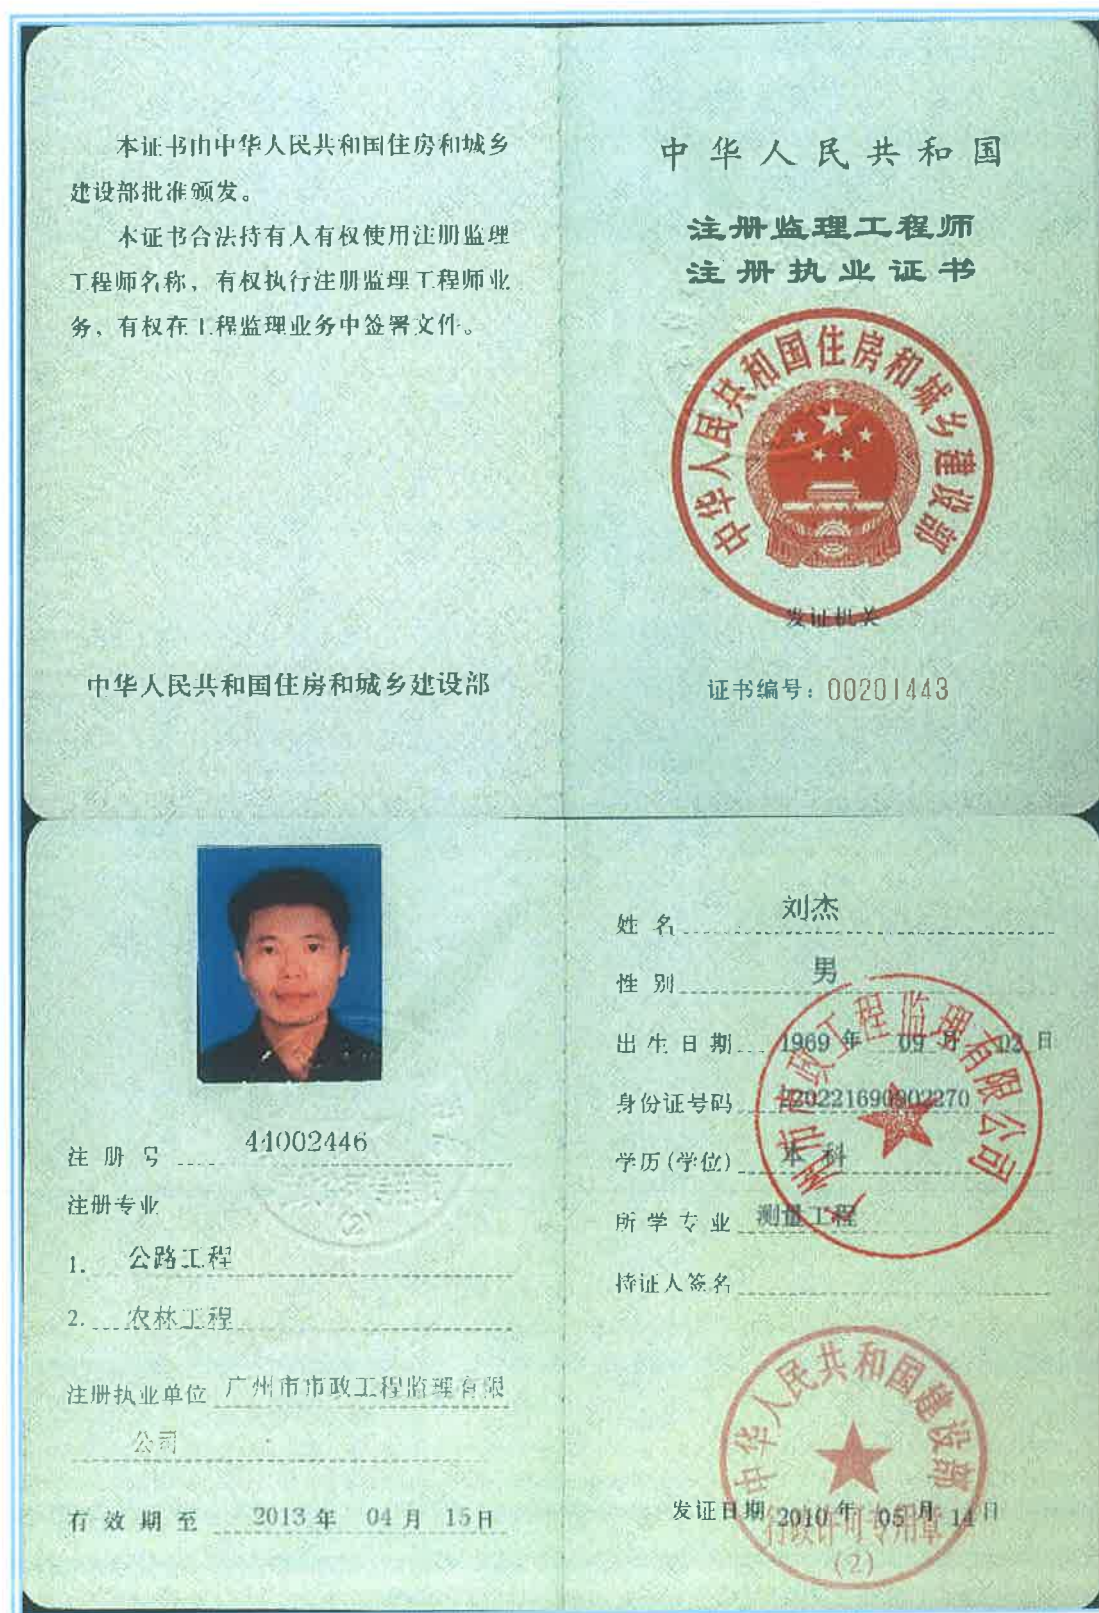 本证书由中华人民共和国住房和城乡
建设部批准颁发。
本证书合法持有人有权使用注册监理
工程师名称，有权执行注册监理工程师业
务，有权在工程监理业务中签署文件。
中华人民共和国住房和城乡建设部
中华人民共和国
注册监理工程师
注册执业证书
中华人民共和国住房和城乡建设部
发证机关
证书编号：00201443
注册号 44002446
注册专业
1. 公路工程
2. 农林工程
注册执业单位 广州市市政工程监理有限
公司
有效期至 2013年 04月 15日
(2)
姓名 刘杰
性别 男
出生日期 1969年 09月 02日
身份证号码
学历(学位) 本科
所学专业 测量工程
持证人签名
广州市市政工程监理有限公司
中华人民共和国建设部
发证日期 2010年 05月 14日
行政许可专用章
(2)